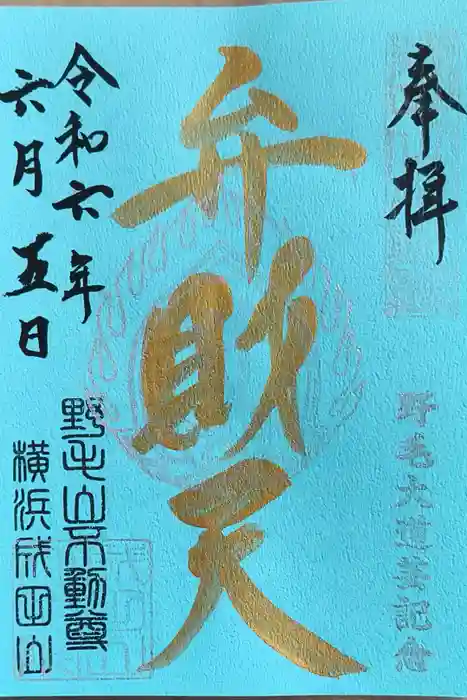 奉拝
野毛大道芸記念
弁財天
令和六年
六月五日
野毛山不動尊
横浜成田山